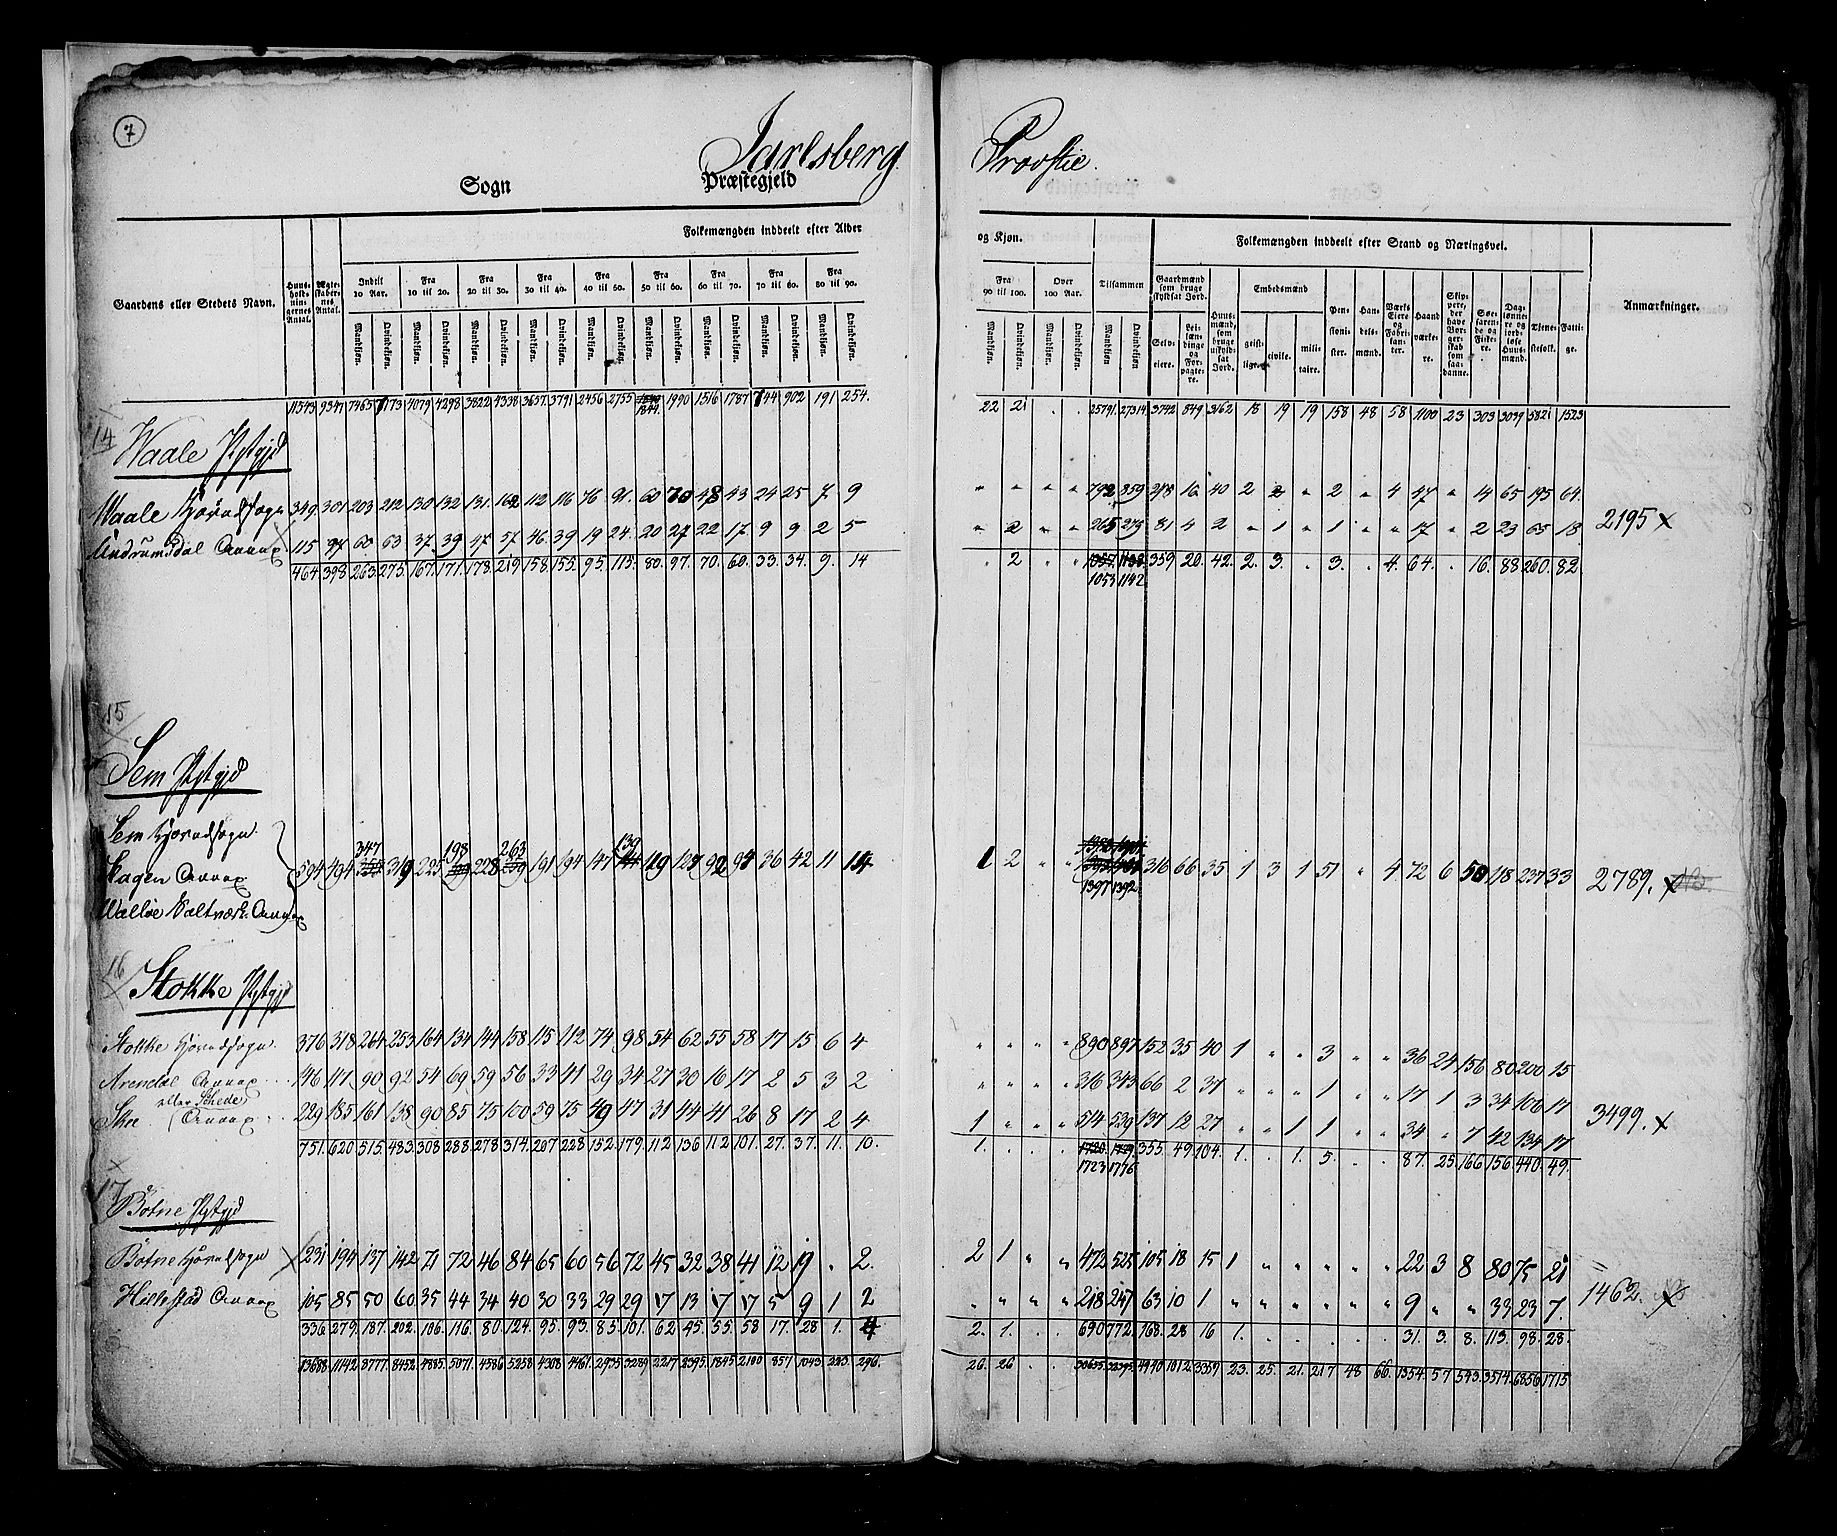 7
Jarlsberg Provstie.
Sogn Præstegjeld
Gaardens eller Stedets Navn.
Huusholdningernes Antal.
Ægteskabernes Antal.
Folkemængden inddeelt efter Alder og Kjøn.
Indtil 10 Aar.
Fra 10 til 20.
Fra 20 til 30.
Fra 30 til 40.
Fra 40 til 50.
Fra 50 til 60.
Fra 60 til 70.
Fra 70 til 80.
Fra 80 til 90.
Fra 90 til 100.
Over 100 Aar.
Tilsammen
Mandkjøn. Qvindekjøn.
Folkemængden inddeelt efter Stand og Næringsvei.
Gaardmænd som bruge skyldsat Jord.
Selveiere. Leilændinge og Forpagtere.
Huusmænd, som bruge uskyldsat Jord.
Embedsmænd
geistlige. civile. militaire.
Pensionister.
Handelsmænd.
Værks Eiere og Fabrikanter.
Haandværkere.
Skippere, der have Borgerskab som saadanne.
Søefarende og Fiskere.
Dagleiere og jordløse Huusmænd.
Tjenestefolk.
Fattige.
Anmærkninger.
11543 9347 7465 7173 4079 4298 3822 4338 3637 3791 2456 2755 1844 1990 1516 1787 744 902 191 254. 22 21 . . 25791 27314 3742 849 3162 18 19 19 158 48 58 1100 23 303 3039 5821 1523
14
Waale Pstgjd
Waale Hovedsogn 349 301 203 212 130 132 131 162 112 116 76 91 60 70 48 43 24 25 7 9 " " " " 792 859 278 16 40 2 2 " 2 " 4 47 " 14 65 195 64
Undrumsdal Annex 115 97 60 63 37 39 47 57 46 39 19 24 20 27 22 17 9 9 2 5 " 2 " " 265 273 81 4 2 " 1 " 1 " " 17 " 2 23 65 18
2195 x
464 398 263 275 167 171 178 219 158 155 95 115 80 97 70 60 33 34 9 14 " 2 . . 359 20 42 2 3 . 3 . 4 64 . 16 88 260 82
1053 1142
15
Sem Pstgjd
Sem Hovedsogn
Slagen Annex
Walløe Saltværk Annex
594 494 347 319 225 198 228 263 191 194 147 139 119 127 92 97 36 42 11 14 1 2 " " 1397 1392 316 66 35 1 3 1 51 " 4 72 6 50 118 237 33 2789. x
16
Stokke Pstgjd
Stokke Hovedsogn 376 318 264 253 164 134 144 158 115 112 74 98 54 62 55 58 17 15 6 4 " " " " 890 897 152 35 40 1 " " 3 " " 36 24 156 80 200 15
Arendal Annex 146 117 90 92 54 69 59 56 33 41 29 34 27 30 16 17 2 5 3 2 " " " " 316 343 66 2 37 " " " 1 " " 17 1 3 34 106 17
eller Schede
Skee Annex 229 185 161 138 90 85 75 100 59 75 49 47 31 44 41 26 8 17 2 4 1 " " " 514 539 137 12 27 " " 1 1 " " 34 " 7 42 134 17
3499. x
751 620 515 483 308 288 278 314 207 228 152 179 112 136 112 101 27 37 11 10 1 . . . 355 49 104 1 . 1 5 . . 87 25 166 156 440 49
1723 1776
17
Botne Pstgjd
Botne Hovedsogn 231 194 137 142 71 72 46 84 65 60 56 72 45 32 38 41 12 19 . 2 2 1 " " 472 525 105 18 15 1 " " " " " 22 3 8 80 75 21
Hillestad Annex 105 85 50 60 35 44 34 40 30 33 29 29 17 13 17 17 5 9 1 2 " " " " 218 247 63 10 1 " " " " " " 9 " " 33 23 7
1462. x
336 279 187 202 106 116 80 124 95 93 85 101 62 45 55 58 17 28 1 4 2 1 . . 690 772 168 28 16 1 . . . . . 31 3 8 113 98 28
13688 11142 8777 8452 4885 5071 4586 5258 4308 4461 2935 3289 2217 2395 1845 2100 857 1043 223 296 26 26 . . 30655 32395 4940 1012 3359 23 25 21 217 48 66 1354 57 543 3514 6856 1715